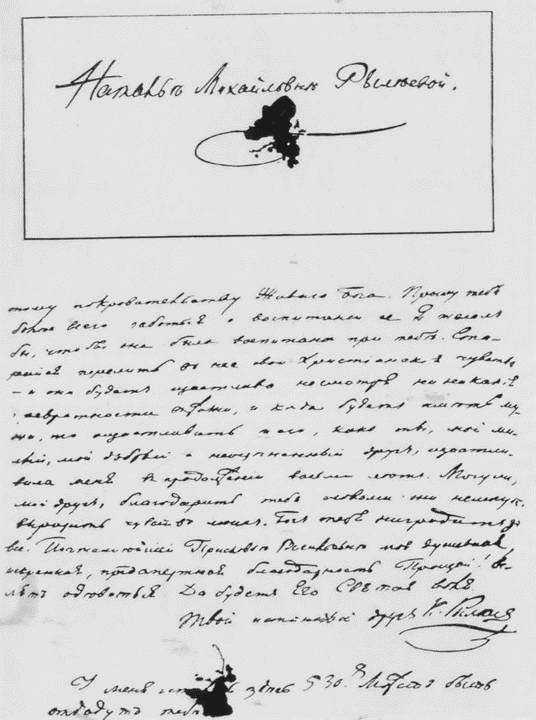 Натальѣ Михайловнѣ Рылѣевой.
тому покровительству Живаго Бога. Прошу тебя
болѣе всего заботься о воспитаніи ее. Я желалъ
бы, чтобы она была воспитана при тебѣ. Ста-
райся перелить въ нее свои Христіанскіе чувства
— и она будетъ щастлива несмотря ни на какіе
превратности въ жизни, и когда будетъ имѣть му-
жа, то ощастливитъ и его, какъ ты, мой ми-
лый, мой добрый и неоцѣненный другъ, щастли-
вила меня въ продолженіи восьми лѣтъ. Могу ли,
мой другъ, благодарить тебя словами: они не могутъ
выразить чувствъ моихъ. Богъ тебя наградитъ за
все. Почтеннѣйшей Прасковьѣ Васильевнѣ моя душевная,
искренная, предсмертная благодарность. Прощай! Ве-
лятъ одѣваться. Да будетъ Его Святая воля.
Твой истинный другъ К. Рылѣевъ
У меня здѣсь 530 р. Можетъ быть
отдадутъ тебѣ